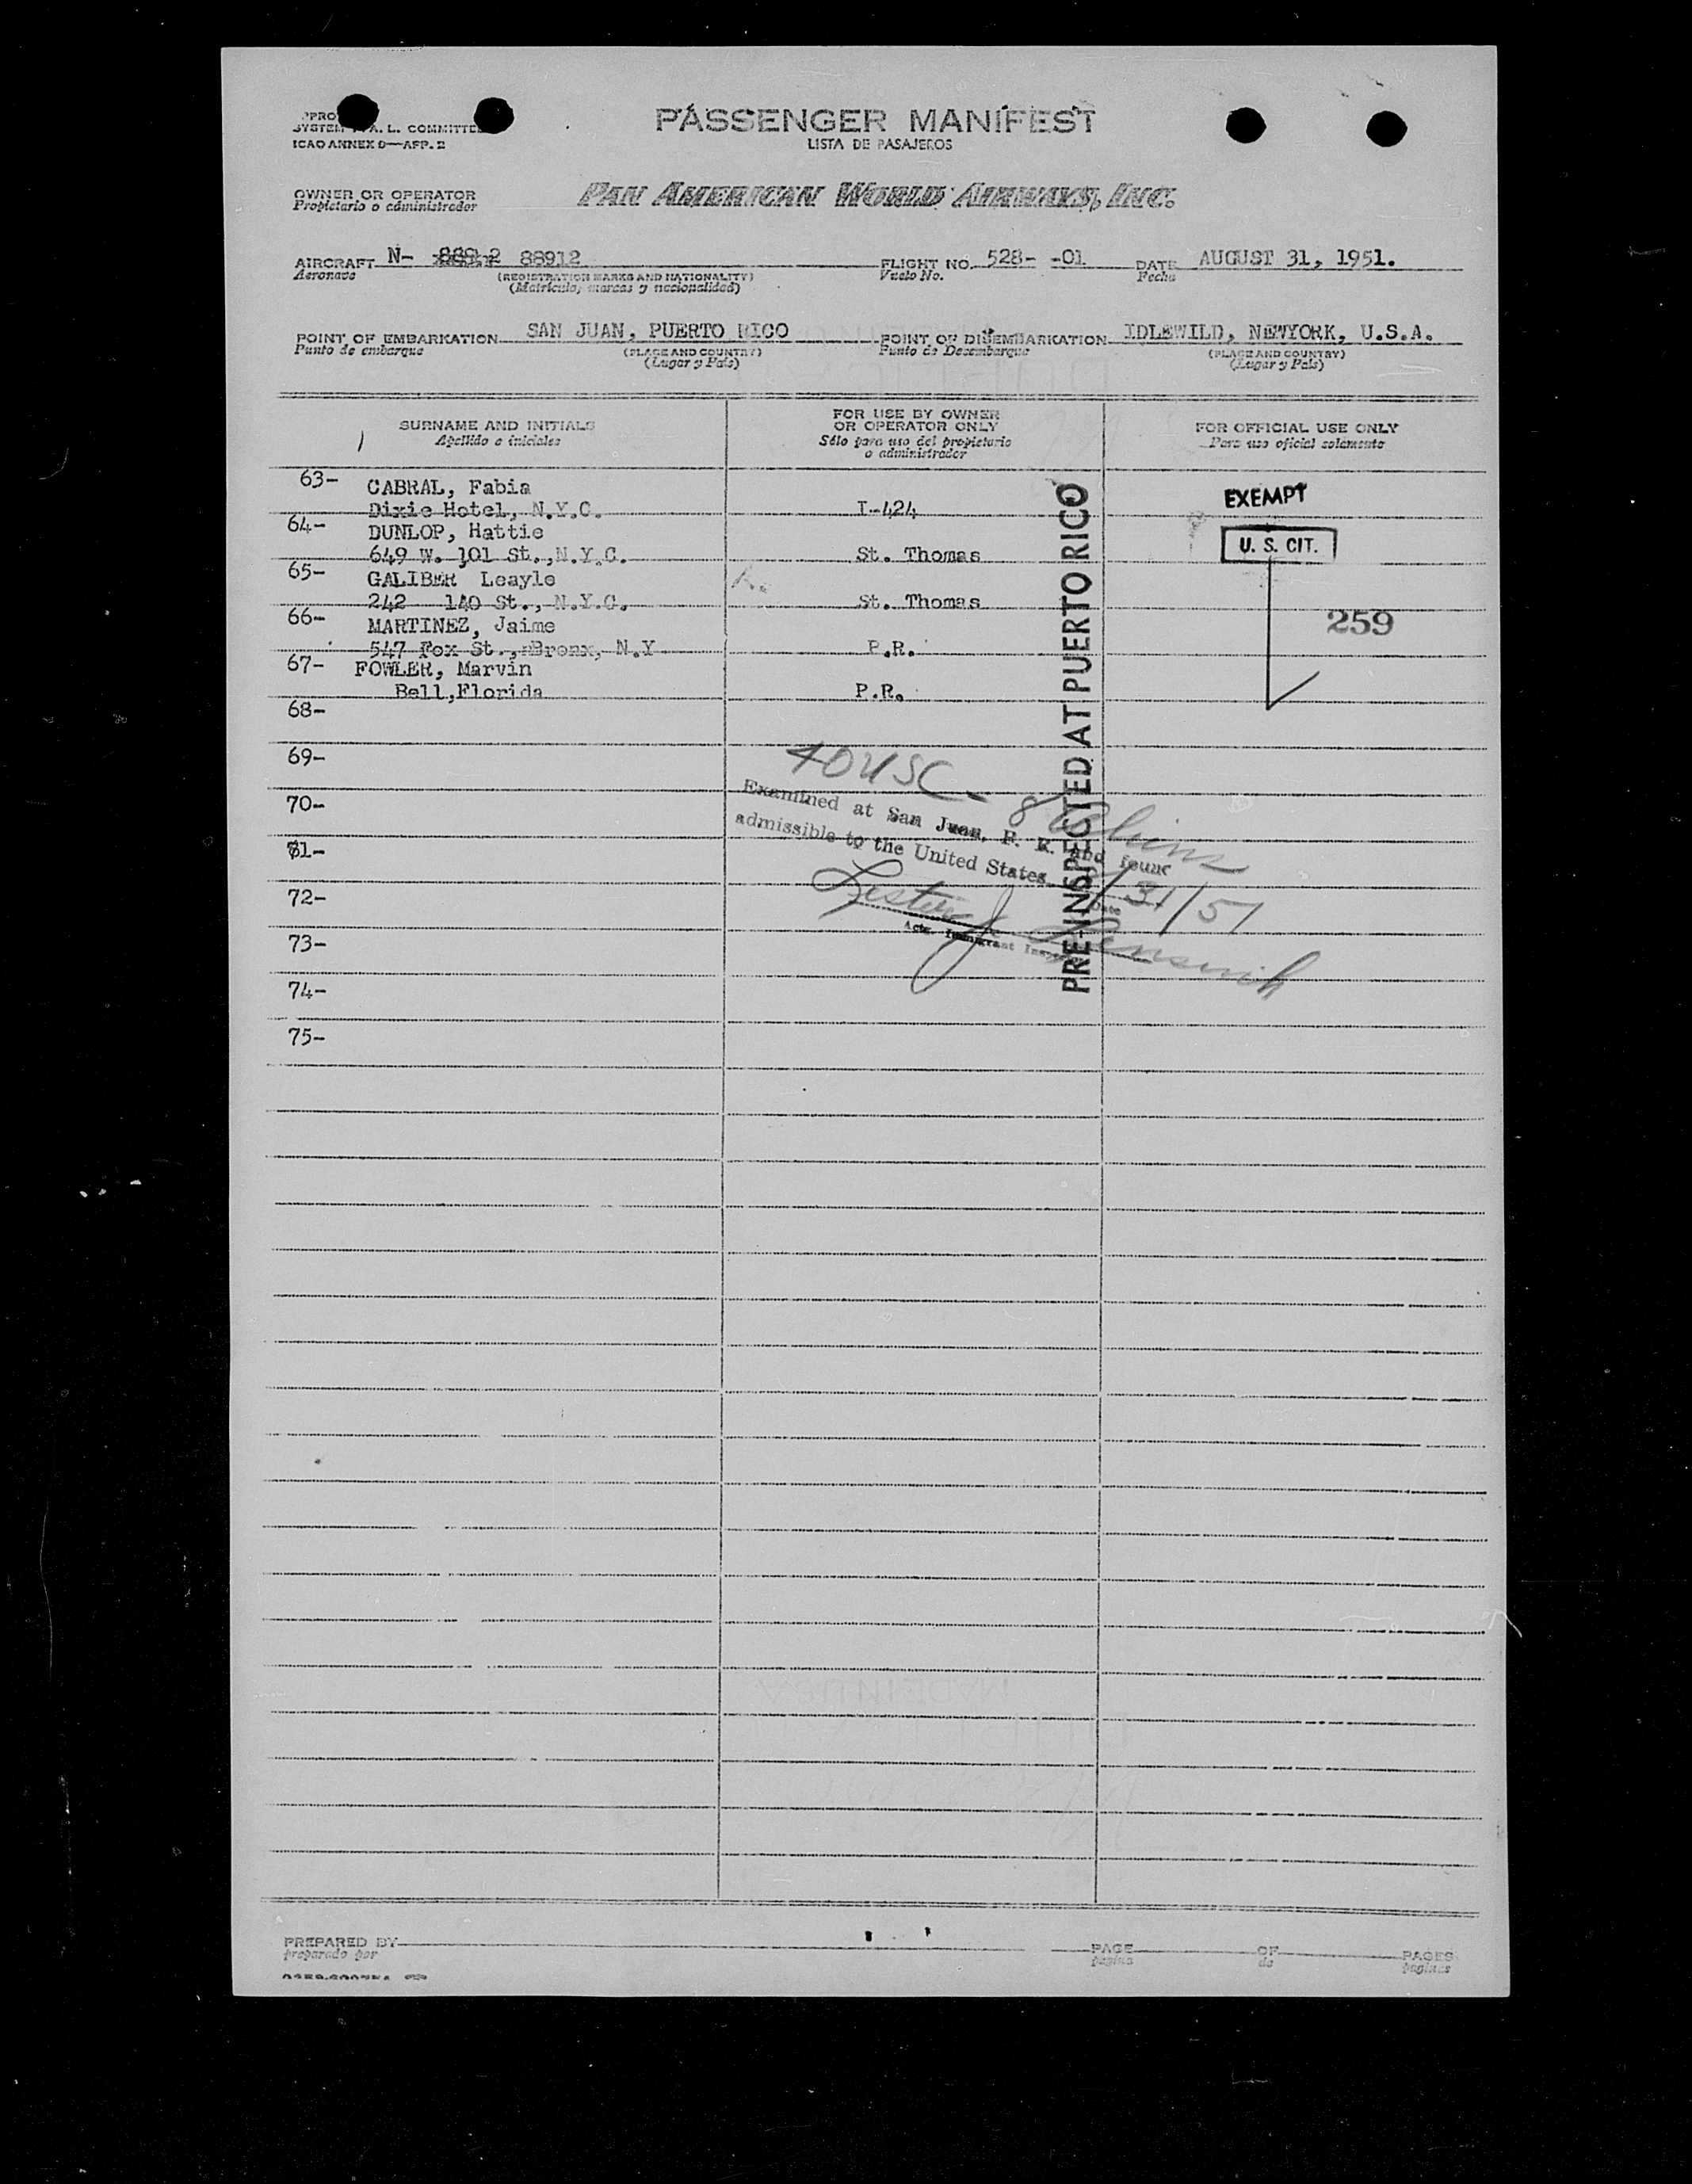 PASSENGER MANIFEST
LISTA DE PASAJEROS
SYSTEM A. L. COMMITTEE
ICAO ANNEX 9—APP. 2
OWNER OR OPERATOR
Propietario o administrador
PAN AMERICAN WORLD AIRWAYS, INC.
AIRCRAFT N- 88912 FLIGHT NO. 528- -01 DATE AUGUST 31, 1951.
Aeronave (REGISTRATION MARKS AND NATIONALITY) Vuelo No. Fecha
(Matrícula, marcas y nacionalidad)
POINT OF EMBARKATION SAN JUAN, PUERTO RICO POINT OF DISEMBARKATION IDLEWILD, NEWYORK, U.S.A.
Punto de embarque (PLACE AND COUNTRY) Punto de Desembarque (PLACE AND COUNTRY)
(Lugar y País) (Lugar y País)
SURNAME AND INITIALS
Apellido e iniciales
FOR USE BY OWNER
OR OPERATOR ONLY
Sólo para uso del propietario
o administrador
FOR OFFICIAL USE ONLY
Para uso oficial solamente
63- CABRAL, Fabia
Dixie Hotel, N.Y.C. I-424
EXEMPT
64- DUNLOP, Hattie
649 W. 101 St.,N.Y.C. St. Thomas
U. S. CIT.
65- GALIBER Leayle
242 140 St., N.Y.C. St. Thomas
66- MARTINEZ, Jaime
547 Fox St., Bronx, N.Y P.R.
259
67- FOWLER, Marvin
Bell,Florida P.R.
68-
69-
70-
71-
72-
73-
74-
75-
PRE-INSPECTED AT PUERTO RICO
40 USC - 8 aliens
Examined at San Juan, P. R. and found
admissible to the United States
8/31/51
Date
Lester J.
Actg. Immigrant
PREPARED BY PAGE OF PAGES
preparado por pagina de paginas